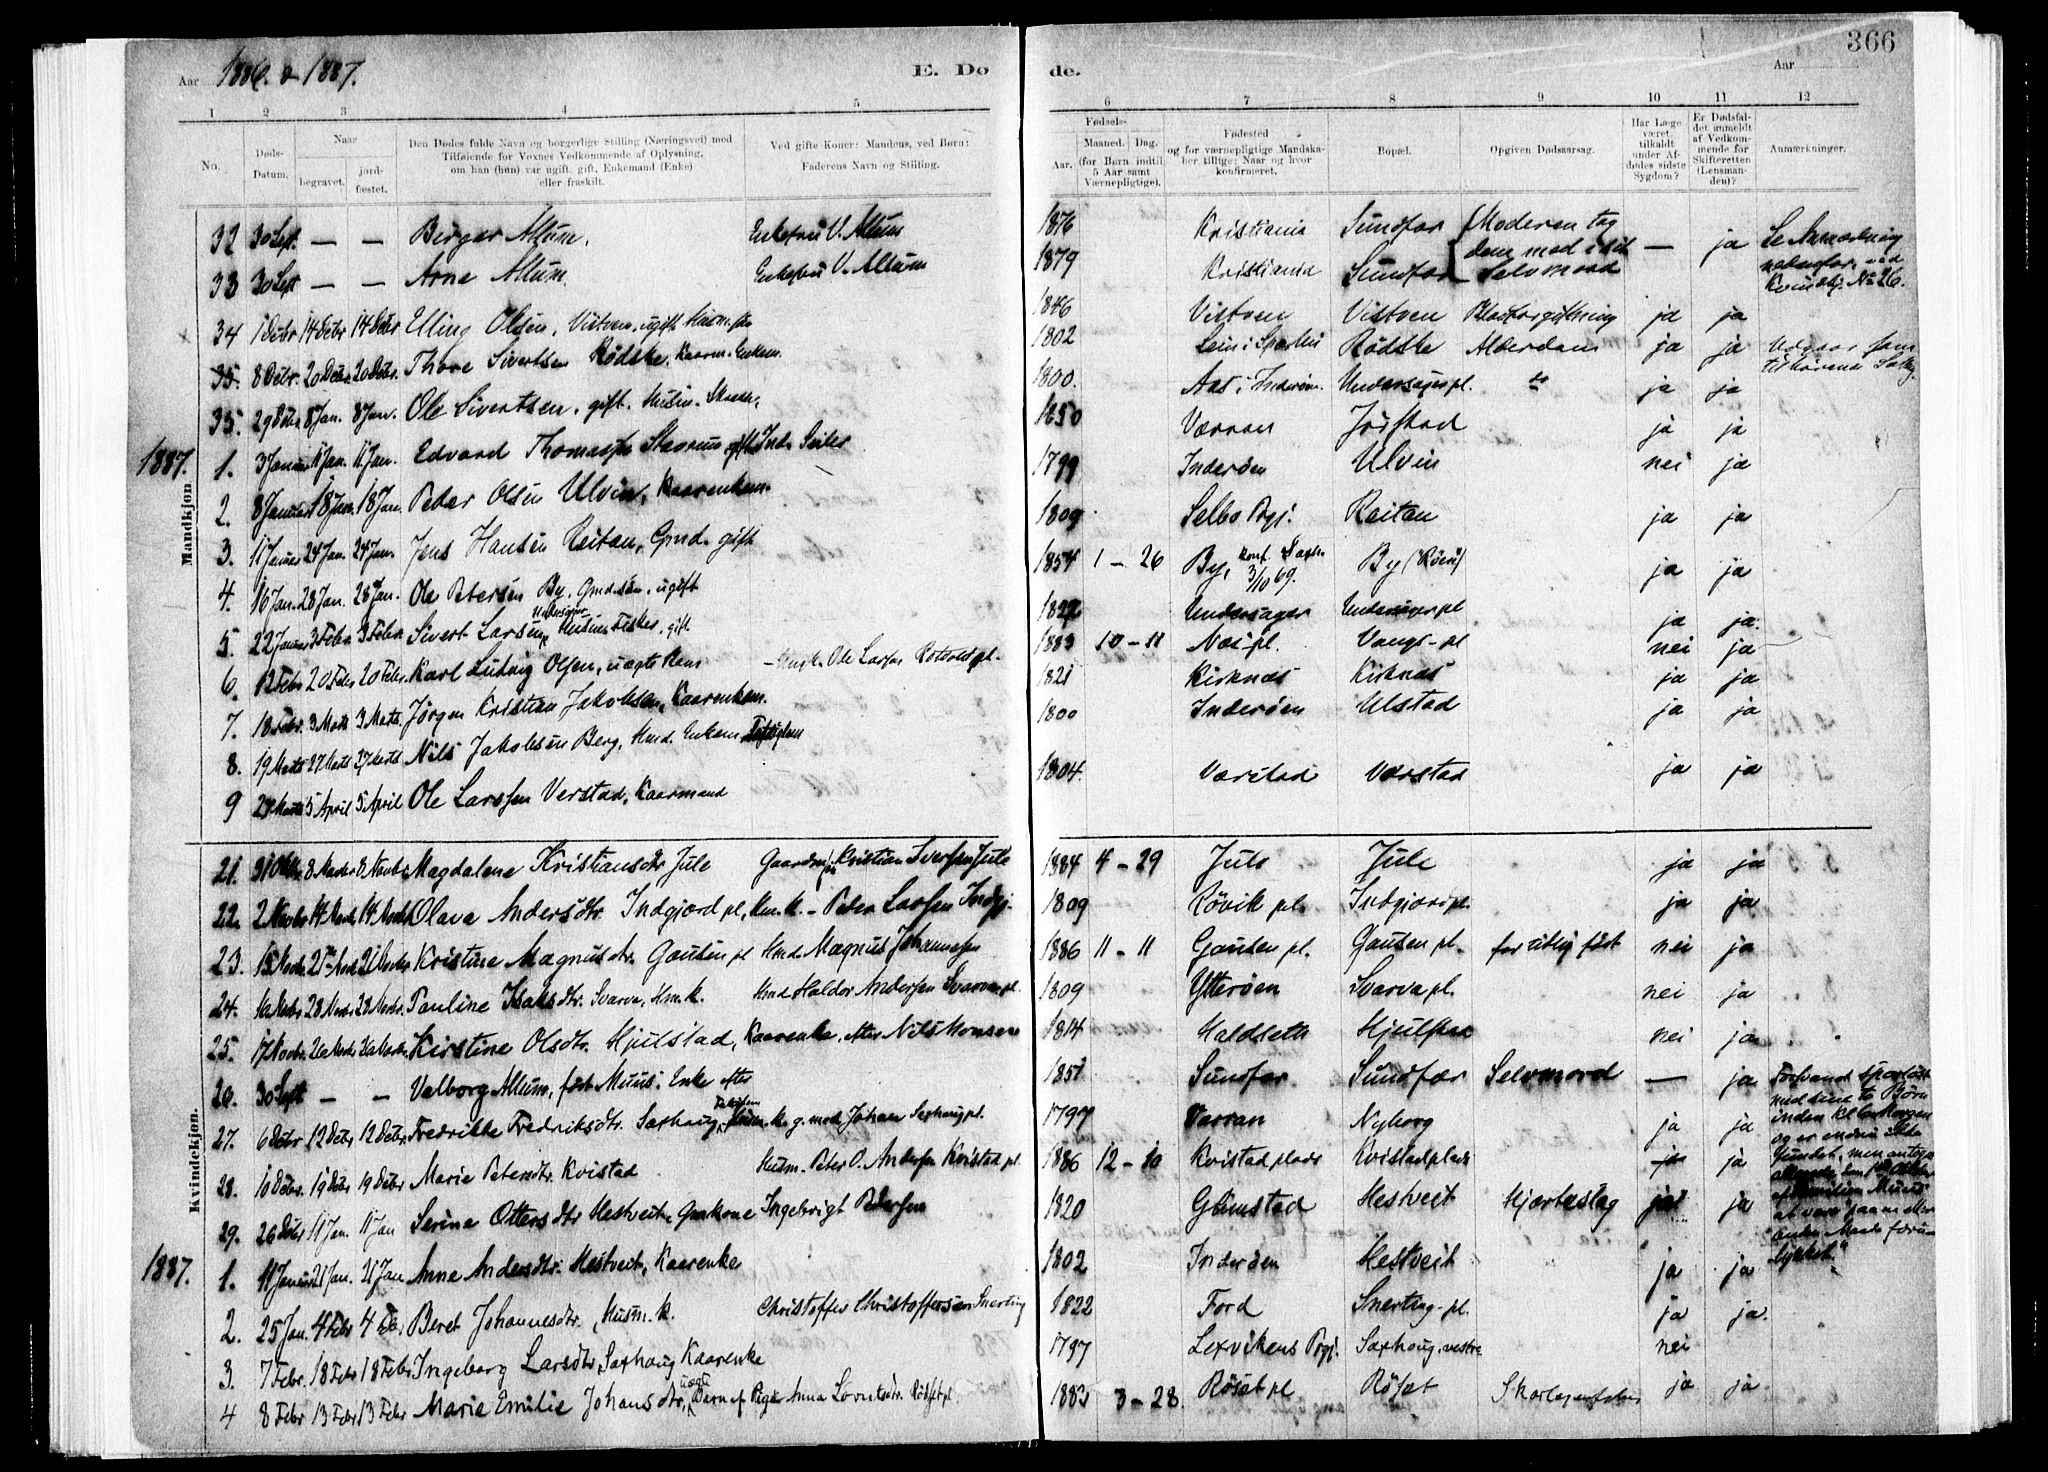 366
Aar 1886 & 1887.
E. Dø
de.
Aar
1 2 3 4 5 6 7 8 9 10 11 12
No.
Døds-
Datum.
Naar
begravet.
jord-
fæstet.
Den Dødes fulde Navn og borgerlige Stilling (Næringsvei) med
Tilføiende for Voxnes Vedkommende af Oplysning,
om han (hun) var ugift, gift, Enkemand (Enke)
eller fraskilt.
Ved gifte Koner: Mandens, ved Børn:
Faderens Navn og Stilling.
Fødsels-
Aar.
Maaned.
Dag.
(for Børn indtil
5 Aar samt
Værnepligtige).
Fødested
og for værnepligtige Mandska-
ber tillige: Naar og hvor
konfirmeret.
Bopæl.
Opgiven Dødsaarsag.
Har Læge
været
tilkaldt
under Af-
dødes sidste
Sygdom?
Er Dødsfal-
det anmeldt
af Vedkom-
mende for
Skifteretten
(Lensman-
den)?
Anmærkninger.
Mandkjøn
32 30 Sept. — — Birger Allum. Enkefru V. Allum 1876 Kristiania Sundfær Moderen tog
dem med i sit
Selvmord — ja Se Anmærkning
nedenfor ved
Kvindekj. No 26.
33 30 Sept — — Arne Allum. Enkefru V. Allum 1879 Kristiania Sundfær
34 1 Debr 14 Debr 14 Debr Elling Olsen, Vistven, ugift 1846 Vistven Vistven Blodforgiftning ja ja
35. 8 Debr. 20 Debr. 20 Debr. Thore Sivertsen Rødske, Kaarm. Enkem. 1802 Rødske Alderdom ja ja
35. 29 Debr 8 Jan. 8 Jan. Ole Sivertsen, gift. Husm. 1800. Aas i Inderøen. Undersager pl. do ja ja
1887.
1. 3 Januar 11 Jan. 11 Jan. Edvard Thomassen gift Ind. 1850 Værran Jørstad ja ja
2. 8 Januar 18 Jan. 18 Jan. Peder Olsen Ulvin, Kaarenkem. 1799 Inderøen Ulvin nei ja
3. 11 Januar 24 Jan. 24 Jan. Jens Hansen Reitan, Gmd. gift 1809 Selbo Pgj. Reitan ja ja
4. 16 Jan. 28 Jan. 28 Jan. Ole Petersen By, Gmd. søn, ugift 1854 1 - 26 By, konf. 3/10 69. By (Røsæ) ja ja
5. 22 Januar 3 Febr 3 Febr. Sivert Larsen, Undersager Husm. Fisker, gift Undersager Undersager pl ja ja.
6. 12 Febr 20 Febr 20 Febr. Karl Ludvig Olsen, uægte Ole Larsen 1883 10 - 11 Næs-pl. Vangs-pl nei ja
7. 18 Febr. 3 Marts 3 Marts. Jørgen Kristian Jakobsen, Kaarenkem. 1821 Kirknæs Kirknæs ja ja
8. 19 Marts 27 Marts 27 Marts Nils Jakobsen Berg, Hmd. Enkem 1800 Inderøen Ulstad ja ja
9 5 April 5 April Ole Larssen Verstad, Kaarmand 1804. Værstad Værstad ja ja
Kvindekjøn.
21. 31 Oktbr 8 Novbr 8 Novbr Magdalene Kristiansdtr Jule Gaardm. Kristian Iversen Jule 1884 4 - 29 Jule Jule ja ja
22. 2 Novbr 14 Novbr 14 Novbr Olava Andersdtr Indgjord pl, Hm. k. - Peter Larsen Indgj. 1809 Røvik pl. Indgjord pl. ja ja
23. 15 Novbr 21 Novbr 21 Novbr Kristine Magnusdtr. Gausen pl Hmd. Magnus Johannesen 1886 11 - 11 Gausen pl. Gausen pl. for tidlig født nei ja
24. 16 Novbr 28 Novbr 28 Novbr. Pauline Isaksdtr. Svarva, Hm. k. Hmd Haldor Andersen Svarva pl. 1809 Ytterøen Svarva pl. nei ja
25. 17 Novbr. 26 Novbr. 26 Novbr. Kirstine Olsdtr. Hjulstad, Kaarenke, efter Nils Monsen 1814 Haldseth nei ja
26. 30 Sept — — Valborg Allum, født Muus. Enke efter 1851 Sundfær Sundfær Selvmord — ja Forsvandt sporløst
med sine to Børn
inden Kl 6 Morgen
og er endnu ikke
fundet, men antages
af Familien Muus
at være paa en eller
anden Maade foru-
lykket."
27. 6 Debr 12 Debr 12 Debr Fredrikke Fredriksdtr. Saxhaug, Husm. k. g. med Johan Saxhaug pl. 1797 Værran Nyborg ja ja
28. 10 Debr. 19 Debr 19 Debr Marie Petersdtr Kvistad Husm. Peter O. Andersen Kvistad pl 1886 12 - 10 Kvistad plads Kvistadplads ja ja
29. 26 Debr 11 Jan. 11 Jan Serine Ottersdtr Hestveit, Gmkone Ingebrigt Pedersen 1820 Glimstad Hestveit Hjerteslag ja ja
1887.
1. 11 Januar 21 Jan. 21 Jan Anne Andersdtr. Hestveit, Kaarenke 1802 Inderøen Hestveit ja ja
2. 25 Jan. 4 Febr 4 Feb. Beret Johannesdtr., Husm. k. Christoffer Christoffersen Snerting 1822 Ford Snerting-pl. ja ja.
3. 7 Febr. 18 Febr 18 Febr Ingeborg Larsdtr, Saxhaug Kaarenke 1797 Lexvikens Prgj. Saxhaug. vestre nei
4 8 Febr 13 Febr 13 Febr Marie Emilie Johansdtr, uægte Barn af Pige Anna Røset pl. 3 - 28. Røset pl Røset Skarlagensfeber ja ja